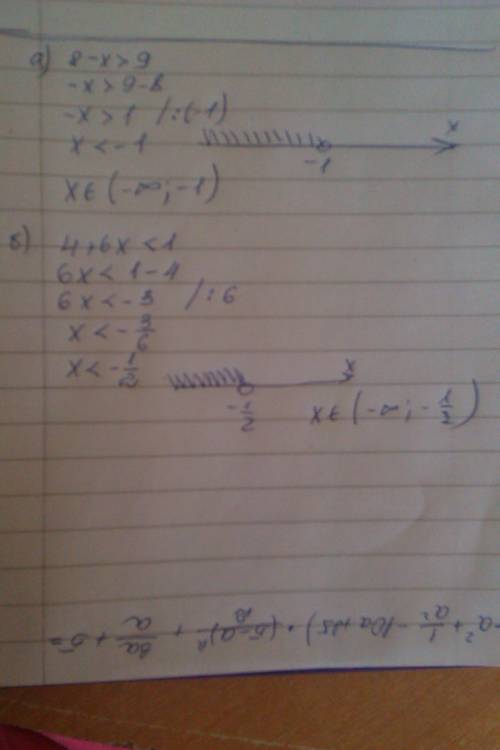 а) 8-x>9
-x>9-8
-x>1 /:(-1)
x<-1
x
-1
x∈(-∞; -1)
б) 4+6x<1
6x<1-4
6x<-3 /:6
x<-3/6
x<-1/2
x
-1/2
x∈(-∞; -1/2)